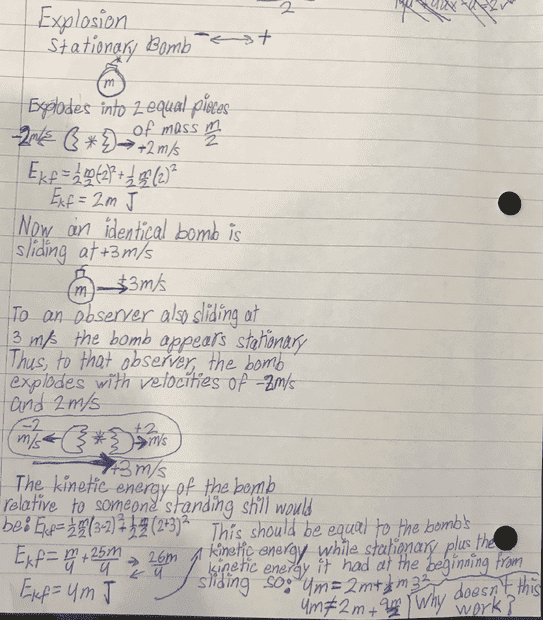 2
Explosion
Stationary Bomb - ←→ +
m
Explodes into 2 equal pieces
of mass m/2
-2m/s ← {*} → +2m/s
Ekf = ½ m/2 (-2)² + ½ m/2 (2)²
Ekf = 2m J
Now an identical bomb is
sliding at +3m/s
m → +3m/s
To an observer also sliding at
3 m/s the bomb appears stationary
Thus, to that observer, the bomb
explodes with velocities of -2m/s
and 2m/s
-2 m/s ← {*} → +2 m/s
→ +3m/s
The kinetic energy of the bomb
relative to someone standing still would
be: Ekf = ½ m/2 (3-2)² + ½ m/2 (2+3)²
Ekf = m/4 + 25m/4 → 26m/4
Ekf = 4m J
This should be equal to the bomb's
kinetic energy while stationary plus the
kinetic energy it had at the beginning from
sliding so: 4m = 2m + ½ m 3²
4m ≠ 2m + 9m/2
Why doesn't this
work?